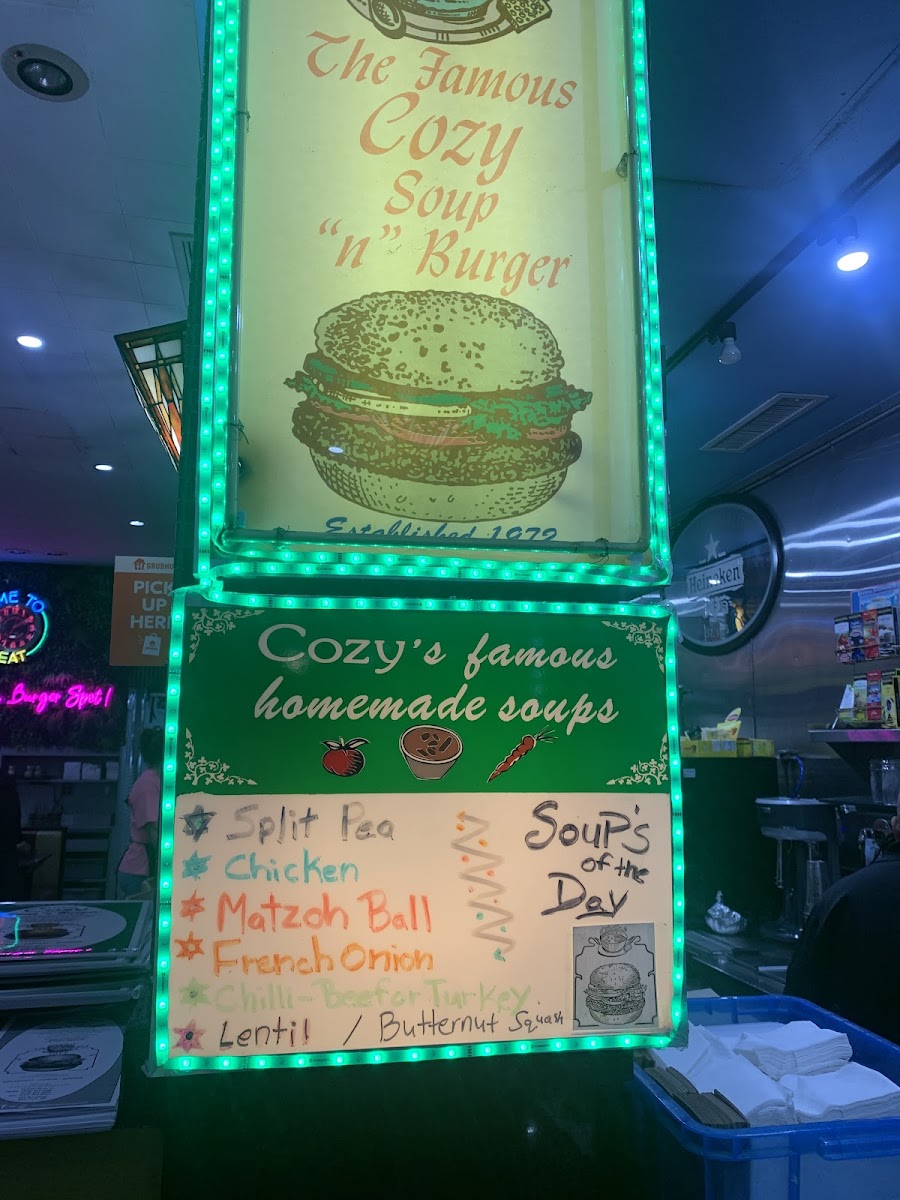 The Famous
Cozy
Soup
"n" Burger
Established 1972
GRUBHU
PICK
UP
HERE
ME TO
EAT
Burger Spot!
Heineken
Cozy's famous
homemade soups
Split Pea
Chicken
Matzoh Ball
French Onion
Chilli-Beef or Turkey
Lentil / Butternut Squash
SouP's
of the
Day